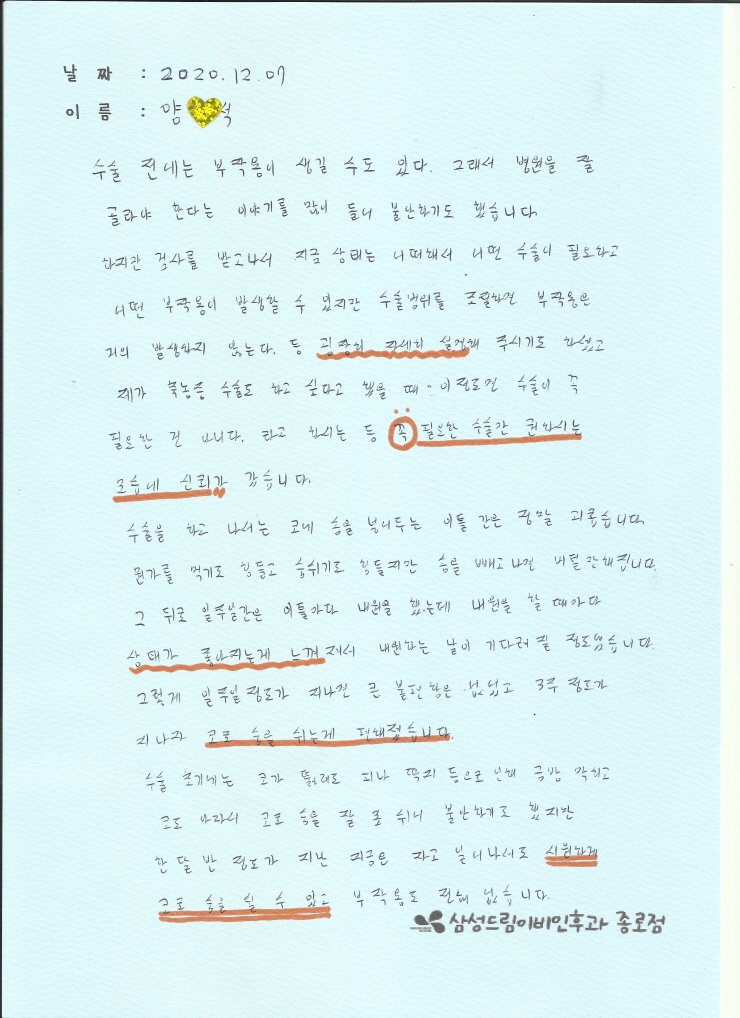 날 짜 : 2020.12.07
이 름 : 양 석
수술 전에는 부작용이 생길 수도 있다. 그래서 병원을 잘
골라야 한다는 이야기를 많이 들어 불안하기도 했습니다.
하지만 검사를 받고나서 지금 상태는 어떠해서 어떤 수술이 필요하고
어떤 부작용이 발생할 수 있지만 수술범위를 조절하면 부작용은
거의 발생하지 않는다. 등 굉장히 자세히 설명해 주시기도 하셨고
제가 축농증 수술도 하고 싶다고 했을 때 이정도면 수술이 꼭
필요한 건 아니다. 라고 하시는 등 꼭 필요한 수술만 권하시는
모습에 신뢰가 갔습니다.
수술을 하고 나서는 코에 솜을 넣어두는 이틀 간은 정말 괴롭습니다.
뭔가를 먹기도 힘들고 숨쉬기도 힘들지만 솜을 빼고나면 버틸만해집니다.
그 뒤로 일주일간은 이틀마다 내원을 했는데 내원을 할 때마다
상태가 좋아지는게 느껴져서 내원하는 날이 기다려질 정도였습니다.
그렇게 일주일 정도가 지나면 큰 불편함은 없었고 3주 정도가
지나자 코로 숨을 쉬는게 편해졌습니다.
수술 초기에는 코가 뚫려도 피나 딱지 등으로 인해 금방 막히고
코도 말라서 코로 숨을 잘 못 쉬어 불안하기도 했지만
한 달 반 정도가 지난 지금은 자고 일어나서도 시원하게
코로 숨을 쉴 수 있고 부작용도 전혀 없습니다.
삼성드림이비인후과 종로점